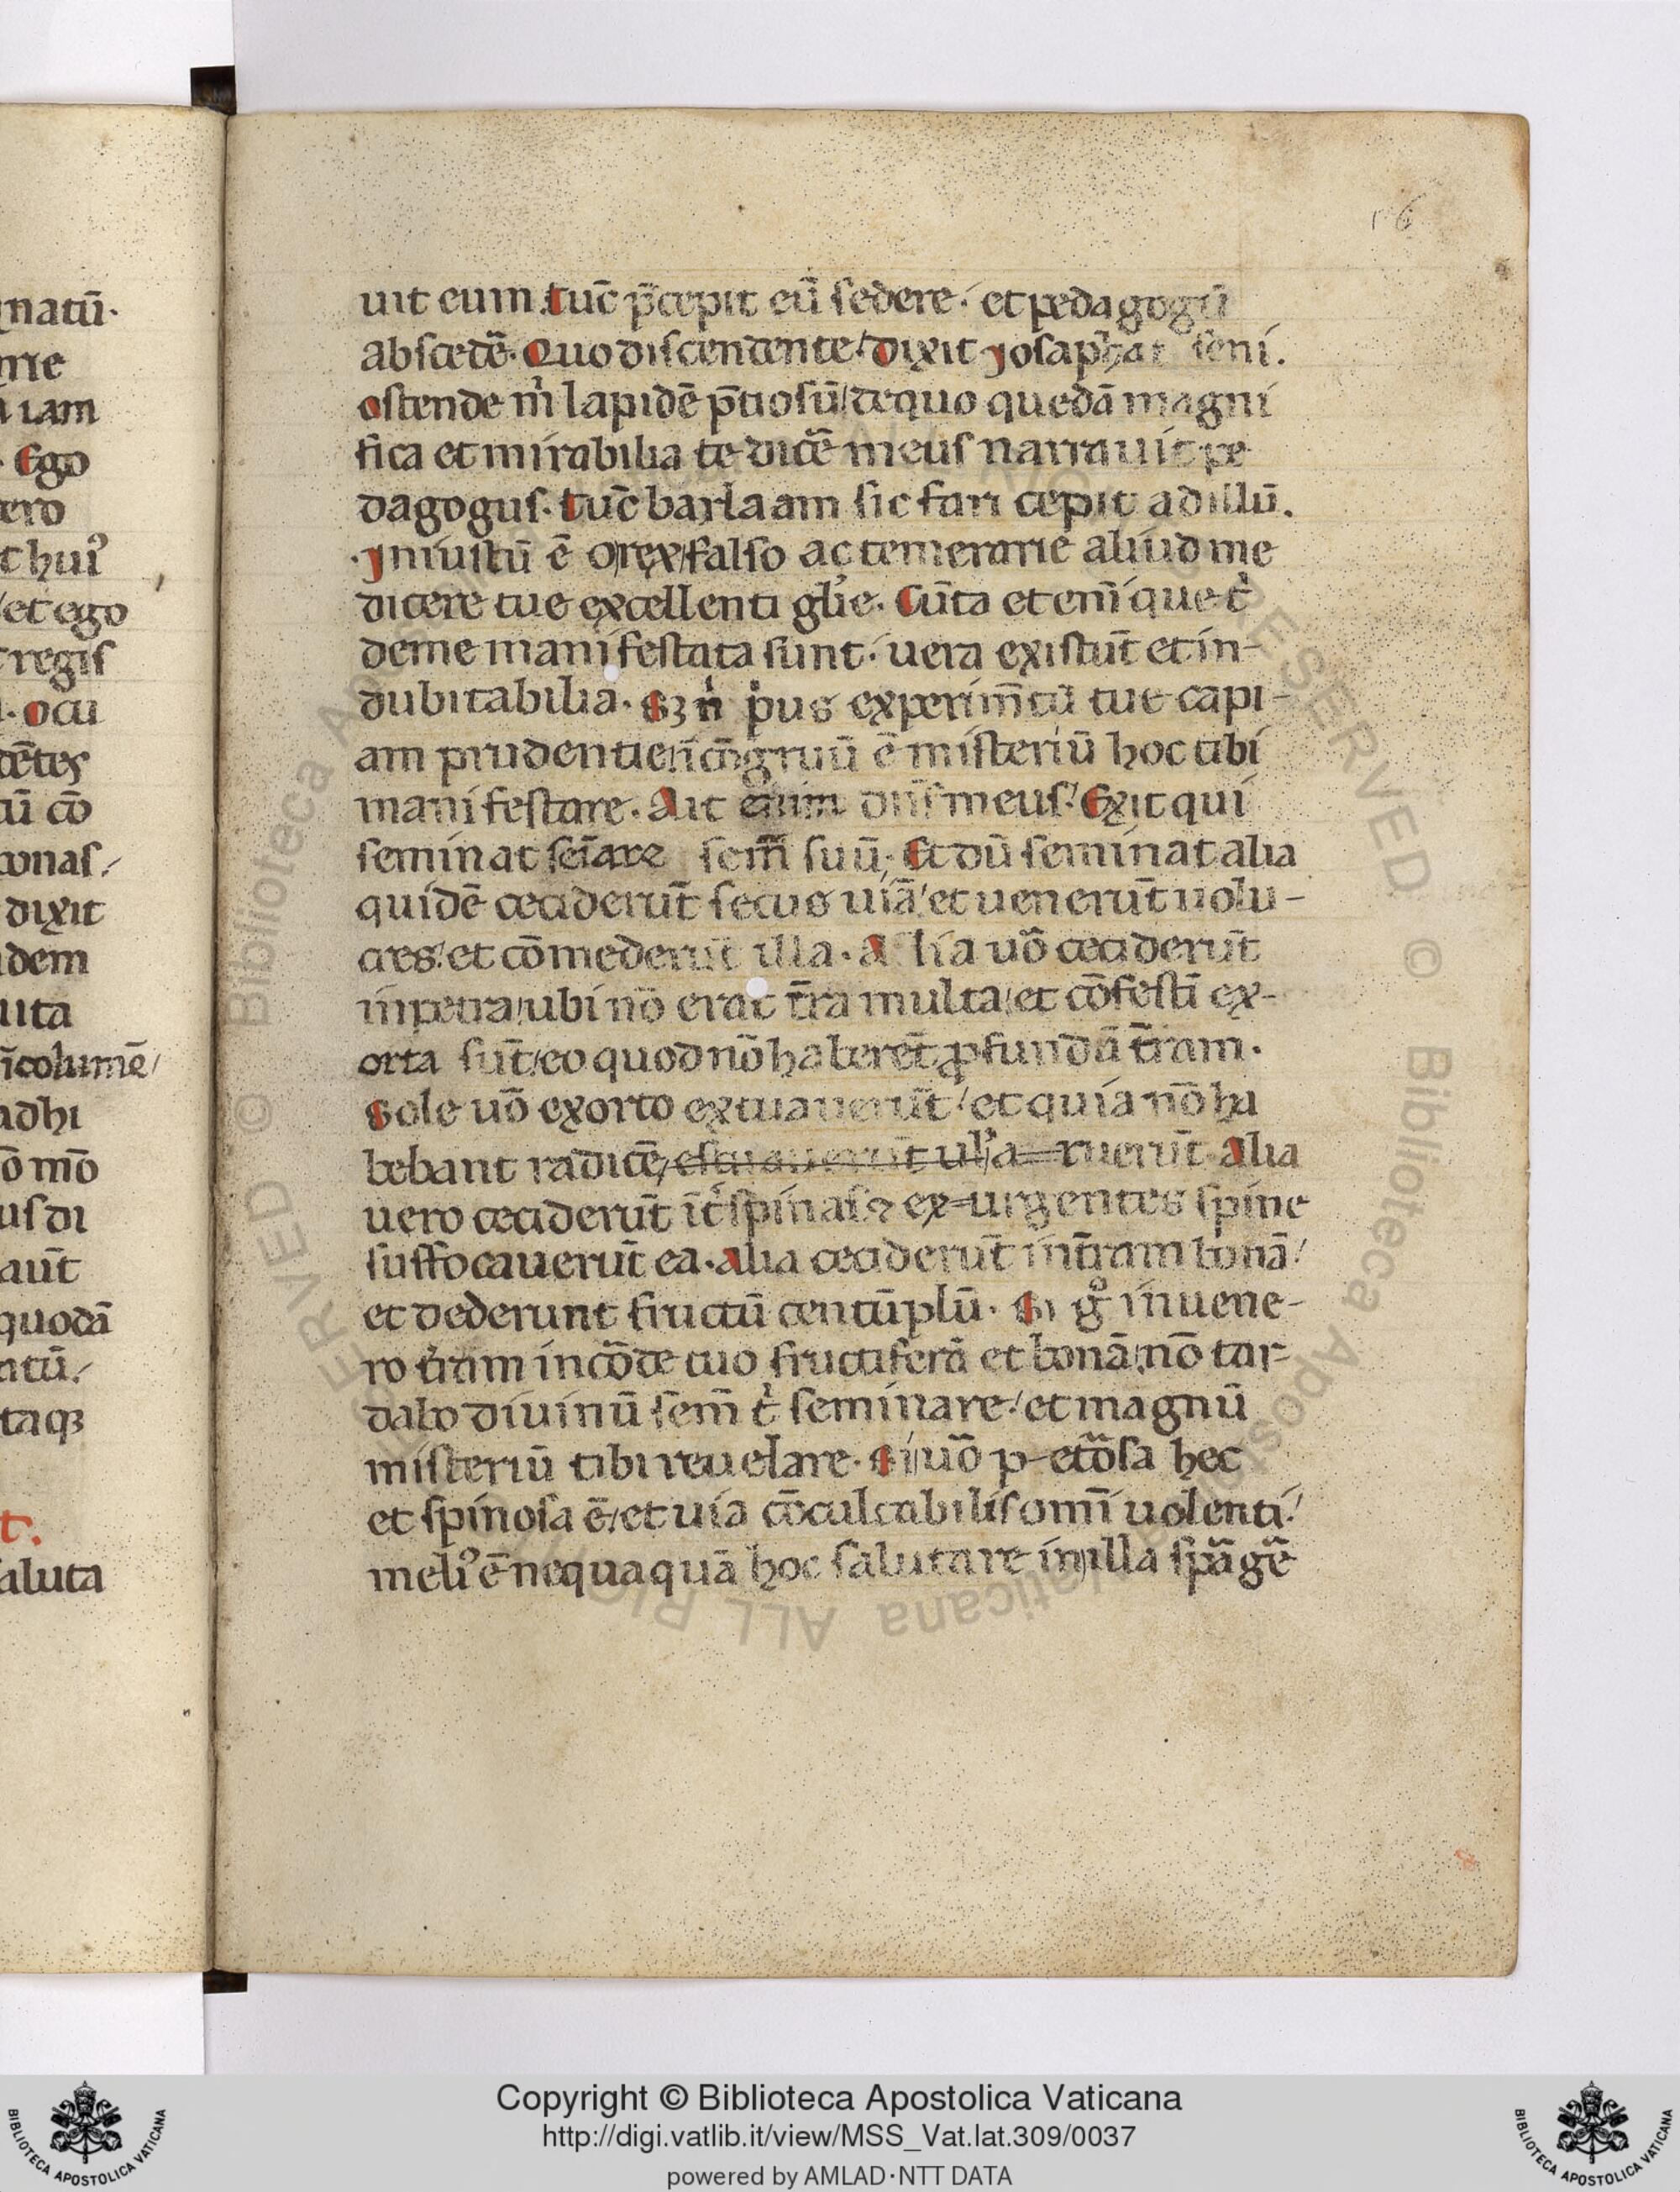 16
uit eum. tuc̄ p̄cepit eū sedere. et pedagogū
abscedē. Quo discendente dixit Josaphat seni.
ostende m̉ lapidē p̄tiosū/ de quo quedā magni
fica et mirabilia te dicē meus narrauit pe
dagogus. tūc barlaam sic fari cepit ad illū.
.Jniustū ē o rex/ falso ac temerarie aliud me
dicere tue excellenti gl̄ie. Cūta etenī que t̉
de me manifestata sunt. uera existūt et in-
dubitabilia. Sꝫ ṅ p̉us experim̄tū tue capi-
am prudentie/ n̄ cōgruū ē misteriū hoc tibi
manifestare. Ait enim dn̄s meus. Exit qui
seminat sēi̅are sem̄ suū. Et dū seminat alia
quidē ceciderūt secus uiā/ et uenerūt uolu-
cres. et cōmederūt illa. Alia uō ceciderūt
in petra/ ubi nō erat t̄ra multa/ et cōfestī ex-
orta sūt/ eo quod nō haberēt ꝓfundā t̄ram.
Sole uō exorto extuauerūt/ et quia nō ha
bebant radicē, ruerūt. Alia
uero ceciderūt īt̉ spinas ⁊ ex=urgentes spine
suffocauerūt ea. Alia ceciderūt in t̄ram bonā/
et dederunt fructū centūplū. Si gͦ inuene-
ro t̄ram in cōde tuo fructiferā et bonā/ nō tar-
dabo diuinū sēm̄ t̉ seminare/ et magnū
misteriū tibi reuelare. Si uō p-etōsa hec
et spinosa ē/ et uia cōculcabilis omī uolenti/
meliꝰ ē nequaquā hoc salutare in illa spāgē
natū.
iam
. Ego
ero
t huiꝰ
/et ego
regis
. ocu
dētes
ū cō
onas/
dixit
dem
uta
īcolumē/
adhi
ō mō
us di
aūt
quodā
ntū/
taqꝫ
t.
aluta
Copyright © Biblioteca Apostolica Vaticana
http://digi.vatlib.it/view/MSS_Vat.lat.309/0037
powered by AMLAD·NTT DATA
BIBLIOTECA APOSTOLICA VATICANA
BIBLIOTECA APOSTOLICA VATICANA